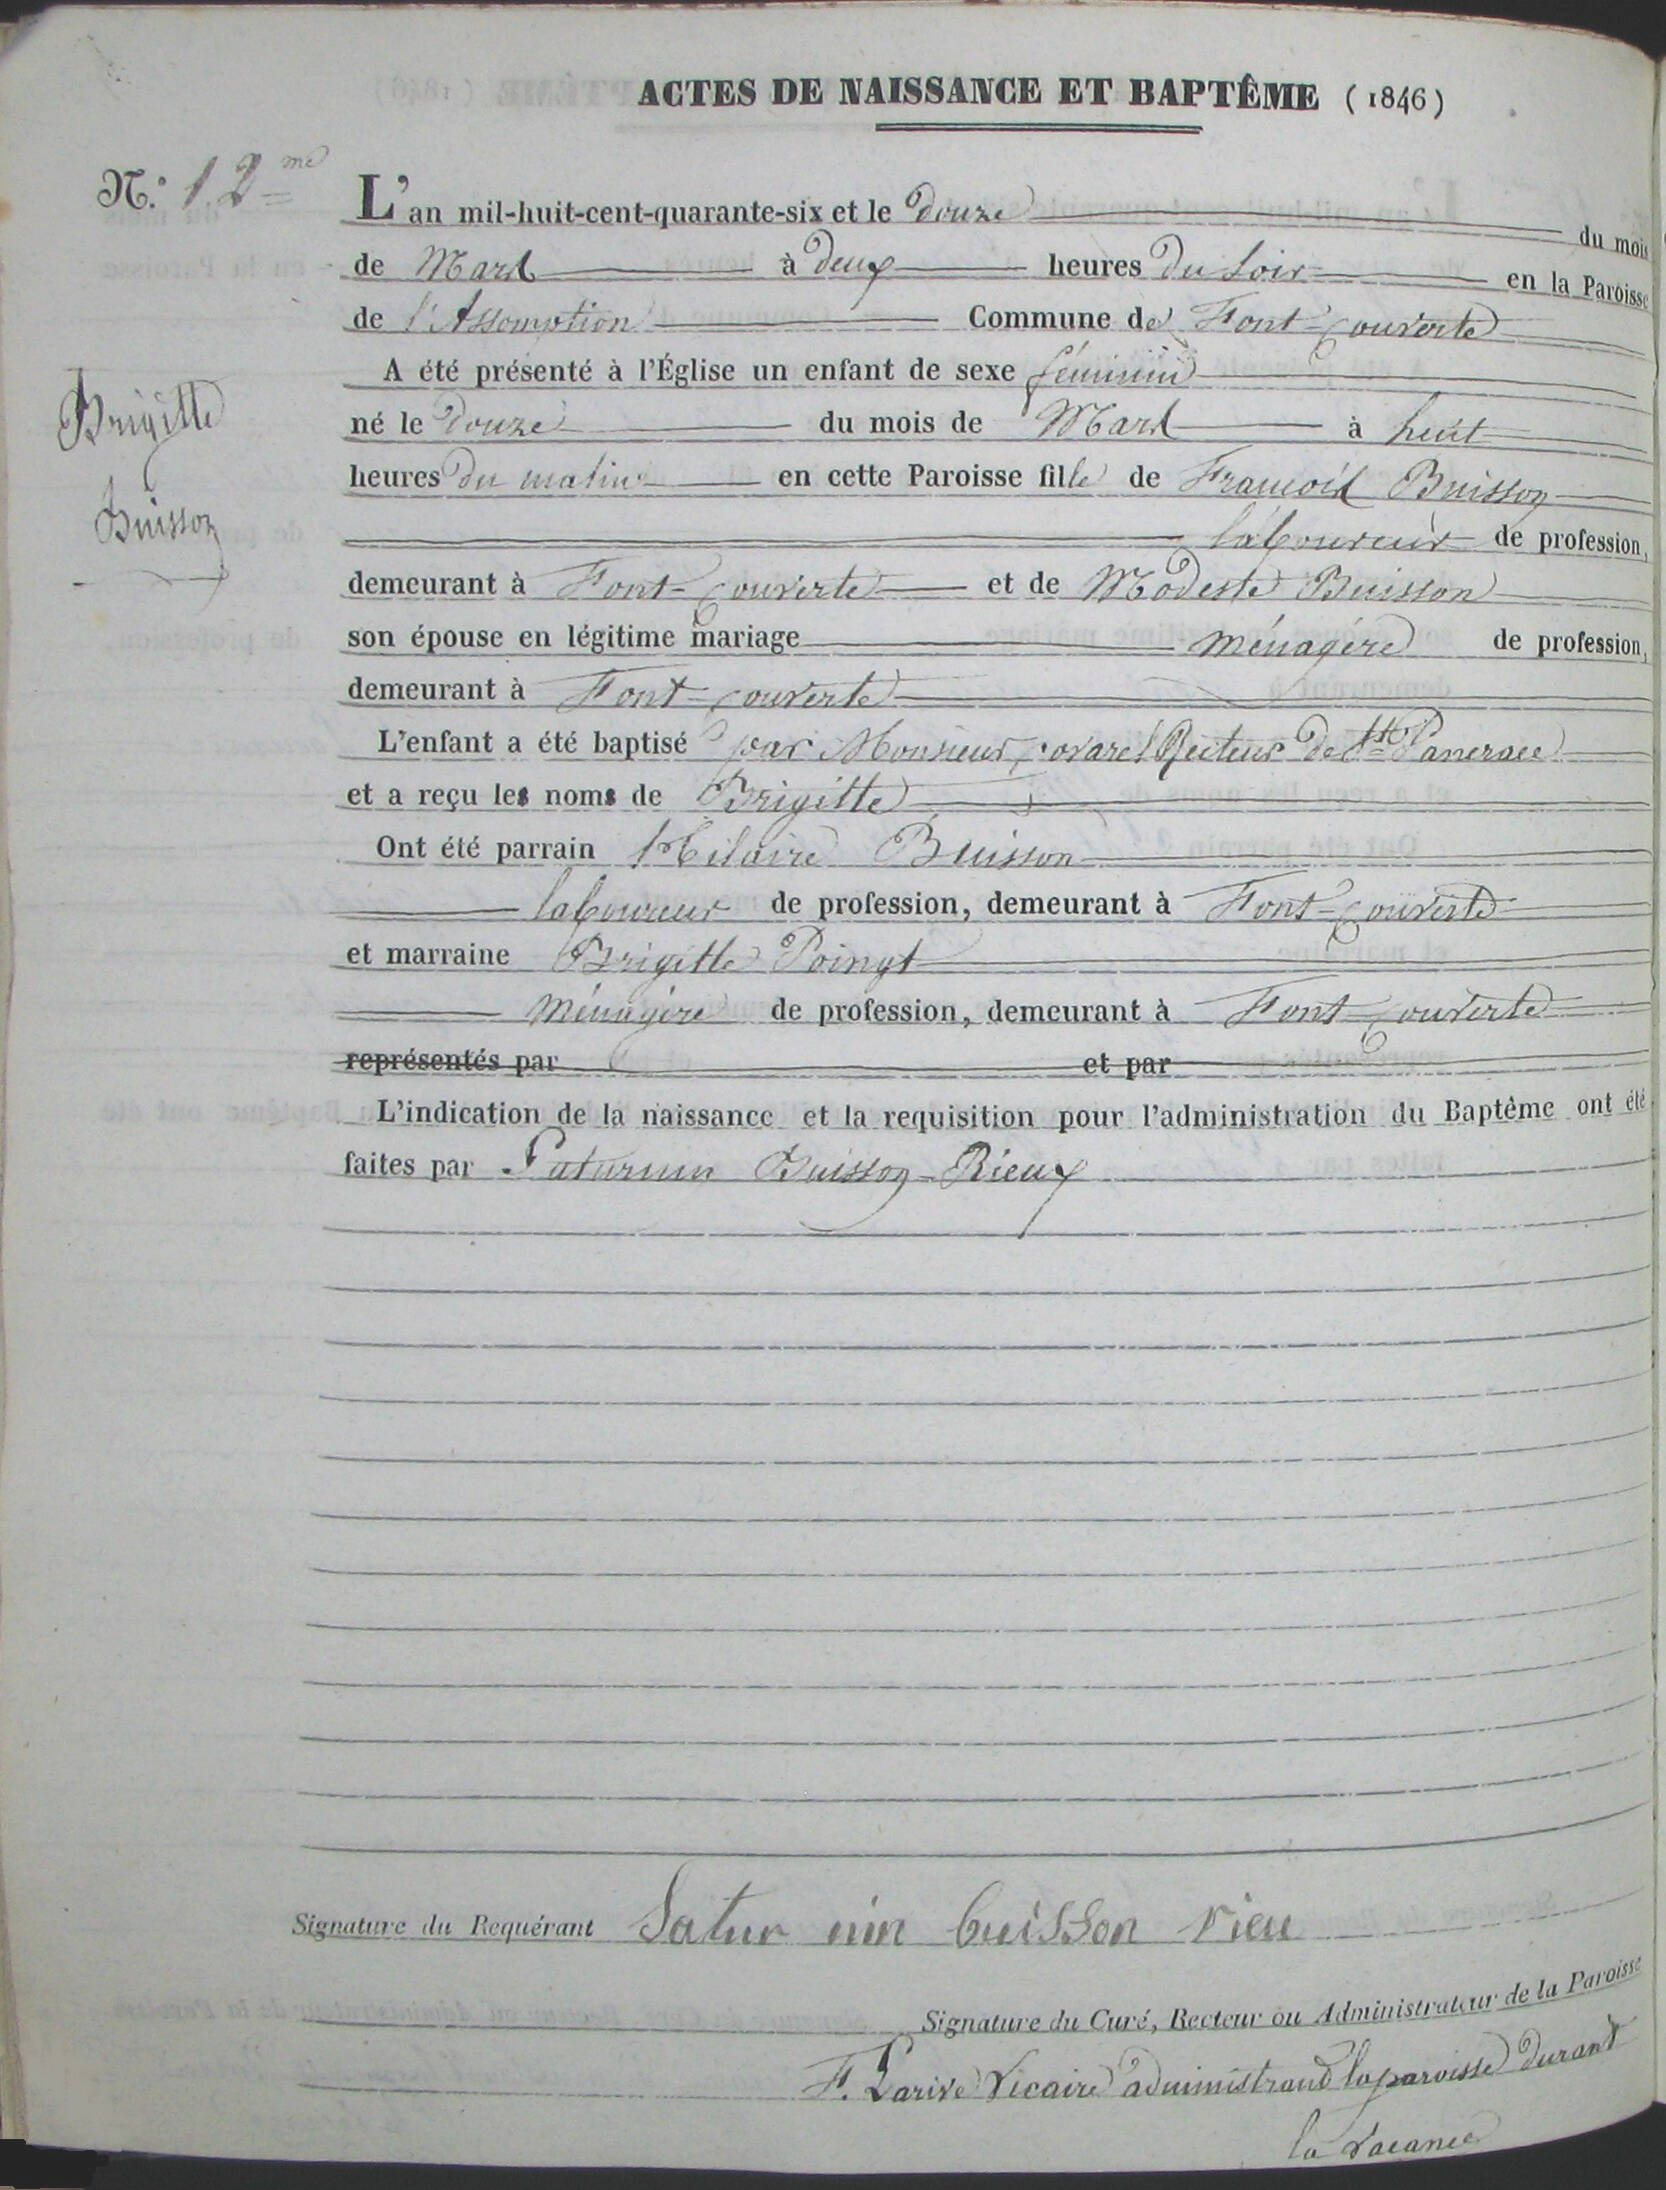 ACTES DE NAISSANCE ET BAPTÊME (1846)
N.° 12me
L'an mil-huit-cent-quarante-six et le douze du mois
de Mars à deux heures du soir en la Paroisse
de l'Assomption Commune de Font-couverte
A été présenté à l'Église un enfant de sexe féminin
né le douze du mois de Mars à huit
heures du matin en cette Paroisse fille de François Buisson
laboureur de profession,
demeurant à Font-couverte et de Modeste Buisson
son épouse en légitime mariage ménagère de profession,
demeurant à Font-couverte
L'enfant a été baptisé par Monsieur covarel Recteur de St Pancrace
et a reçu les noms de Brigitte
Ont été parrain Hilaire Buisson
laboureur de profession, demeurant à Font-couverte
et marraine Brigitte Poingt
Ménagère de profession, demeurant à Font-couverte
représentés par et par
L'indication de la naissance et la requisition pour l'administration du Baptême ont été
faites par Saturnin Buisson-Rieux
Brigitte
Buisson
Signature du Requérant Satur nin buisson rieu
Signature du Curé, Recteur ou Administrateur de la Paroisse
F. Larive Vicaire administrant la paroisse durant
la vacance